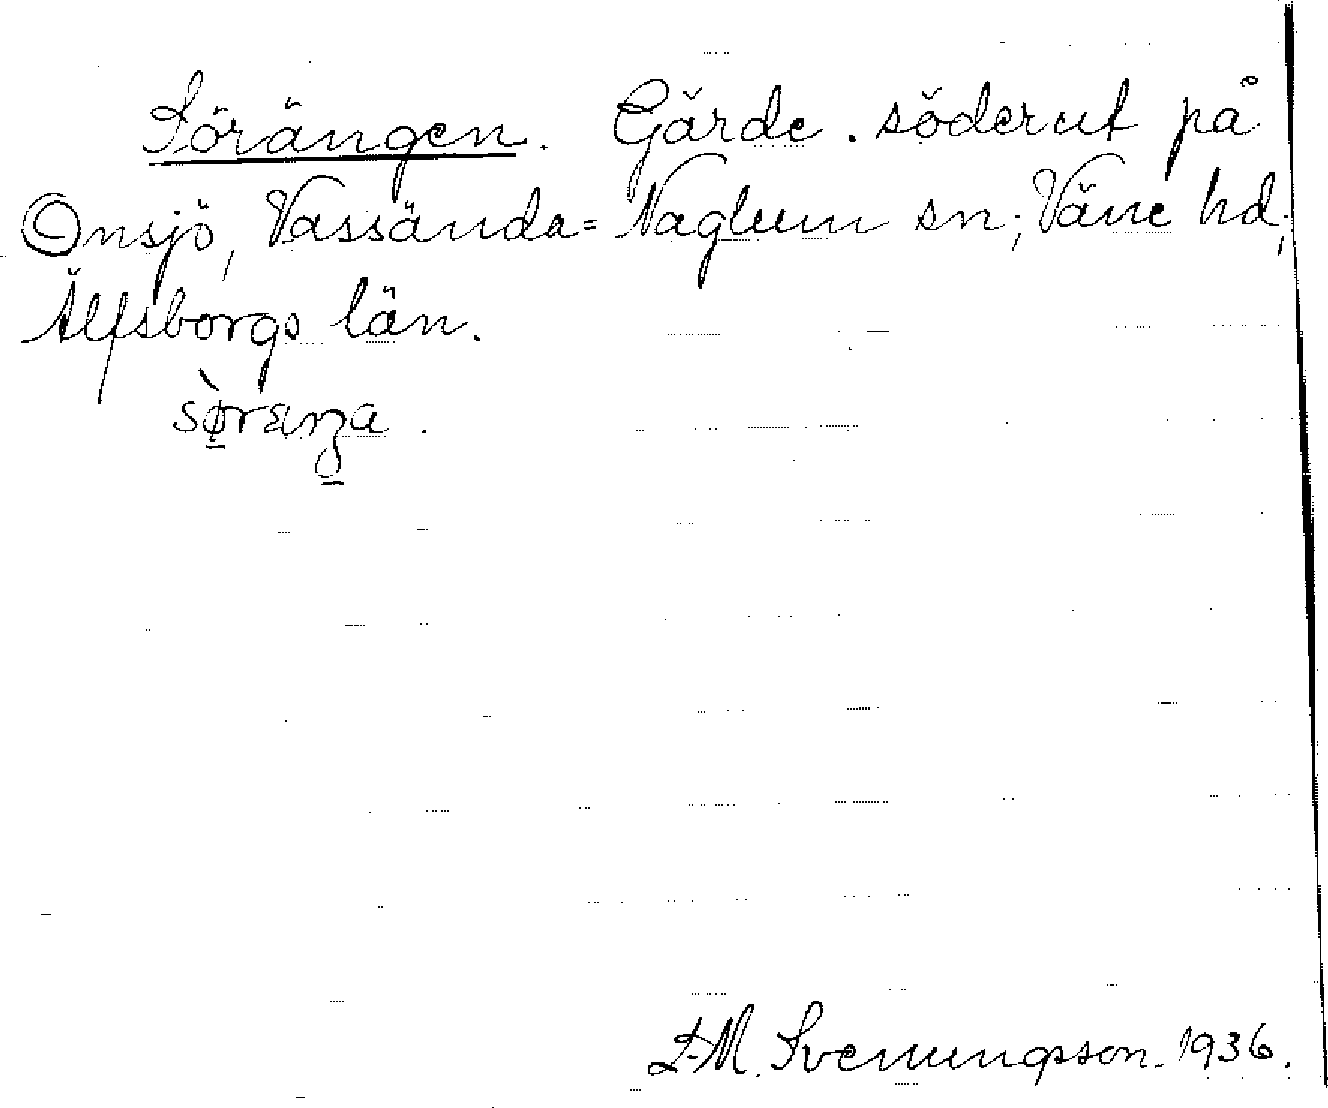 Sörängen. Gärde. söderut på
Onsjö, Vassända=Naglum sn; Väne hd;
Älfsborgs län.
L-M. Svenungsson. 1936.